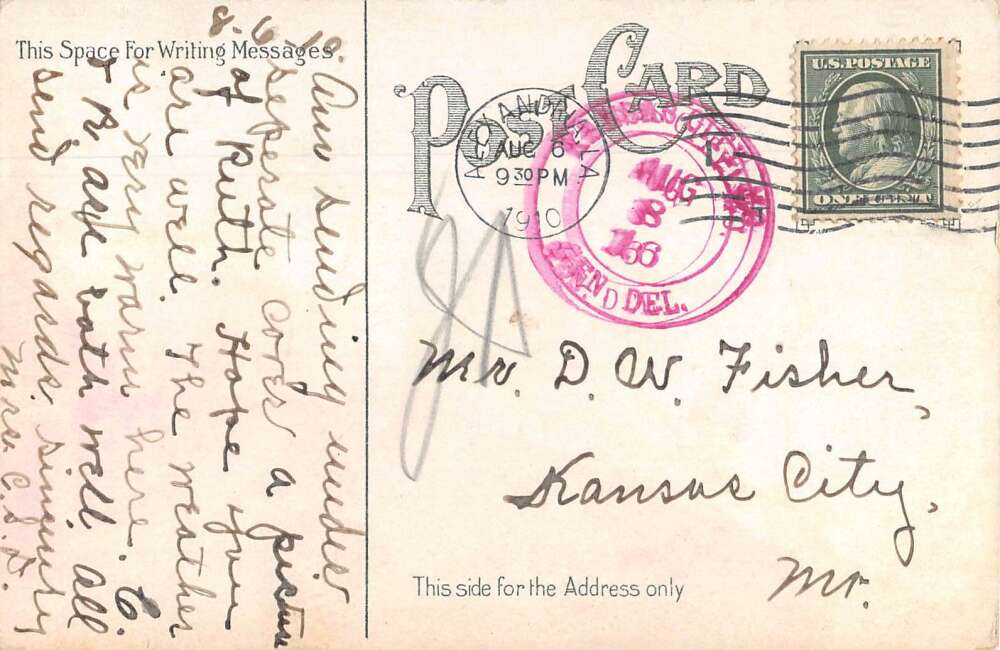 This Space For Writing Messages
8.6.10.
Am sending under
seperate cover a picture
of Ruth. Hope you
are well. The weather
is very warm here. C.
& R are both well. All
send regards. Sincerely
Mrs. C. S. D.
POST CARD
U.S. POSTAGE
ONE CENT
ALEXANDRIA LA
AUG 6
9 30 PM
1910
AUG
8
AND DEL.
Mr. D. W. Fisher,
Kansas City,
Mo.
This side for the Address only